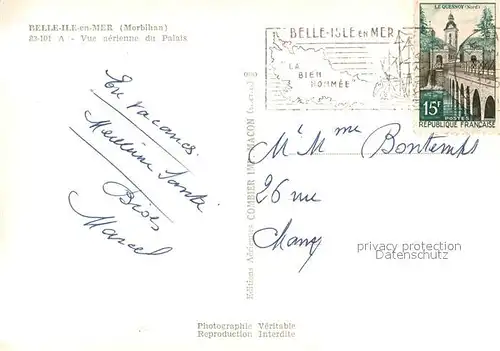 BELLE-ILE-en-MER (Morbihan)
83-101 A - Vue aérienne du Palais
En vacances.
Meilleure Santé
Bises
Marcel
Editions Aériennes COMBIER IMP. MACON
Photographie Véritable
Reproduction Interdite
BELLE-ISLE en MER
"LA
BIEN
NOMMÉE"
LE QUESNOY (Nord)
15F
POSTES
RÉPUBLIQUE FRANÇAISE
Mr Mme Bontemps
26 rue
privacy protection
Datenschutz